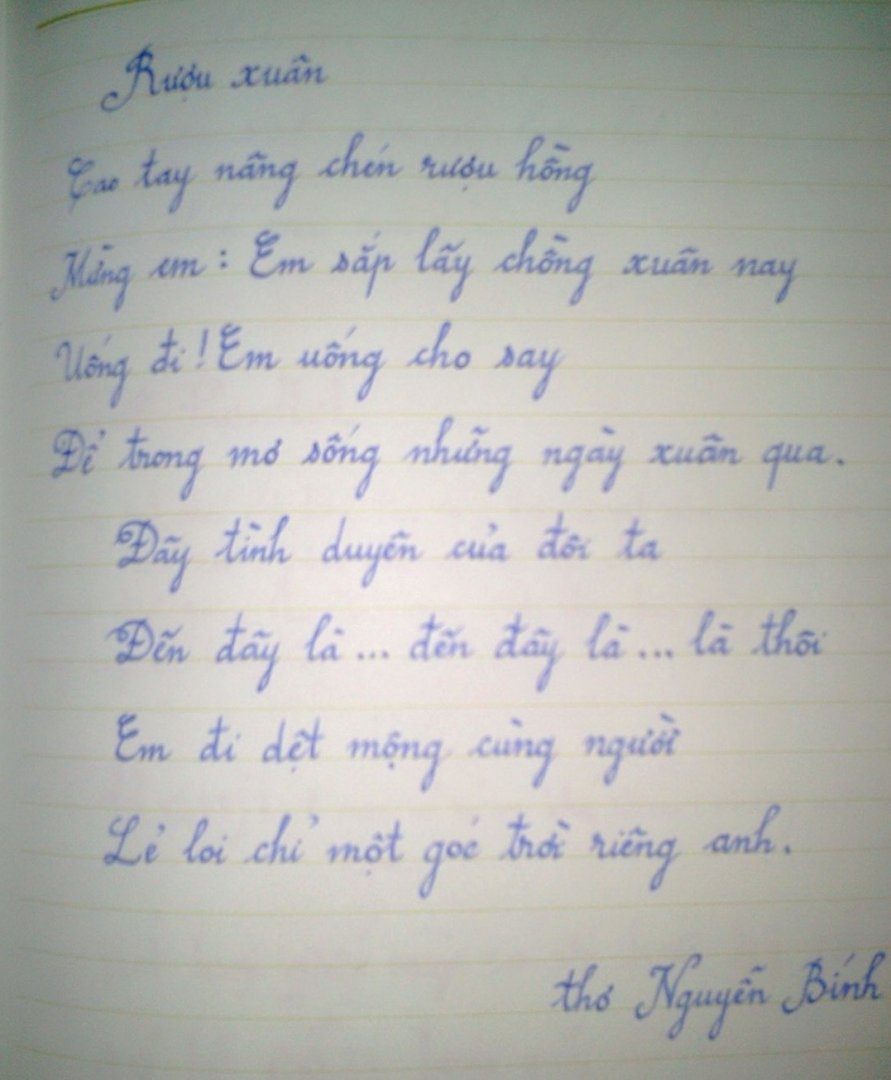 Rượu xuân
Cao tay nâng chén rượu hồng
Mừng em : Em sắp lấy chồng xuân nay
Uống đi ! Em uống cho say
Để trong mơ sống những ngày xuân qua.
Đây tình duyên của đôi ta
Đến đây là ... đến đây là ... là thôi
Em đi dệt mộng cùng người
Lẻ loi chỉ một góc trời riêng anh.
thơ Nguyễn Bính